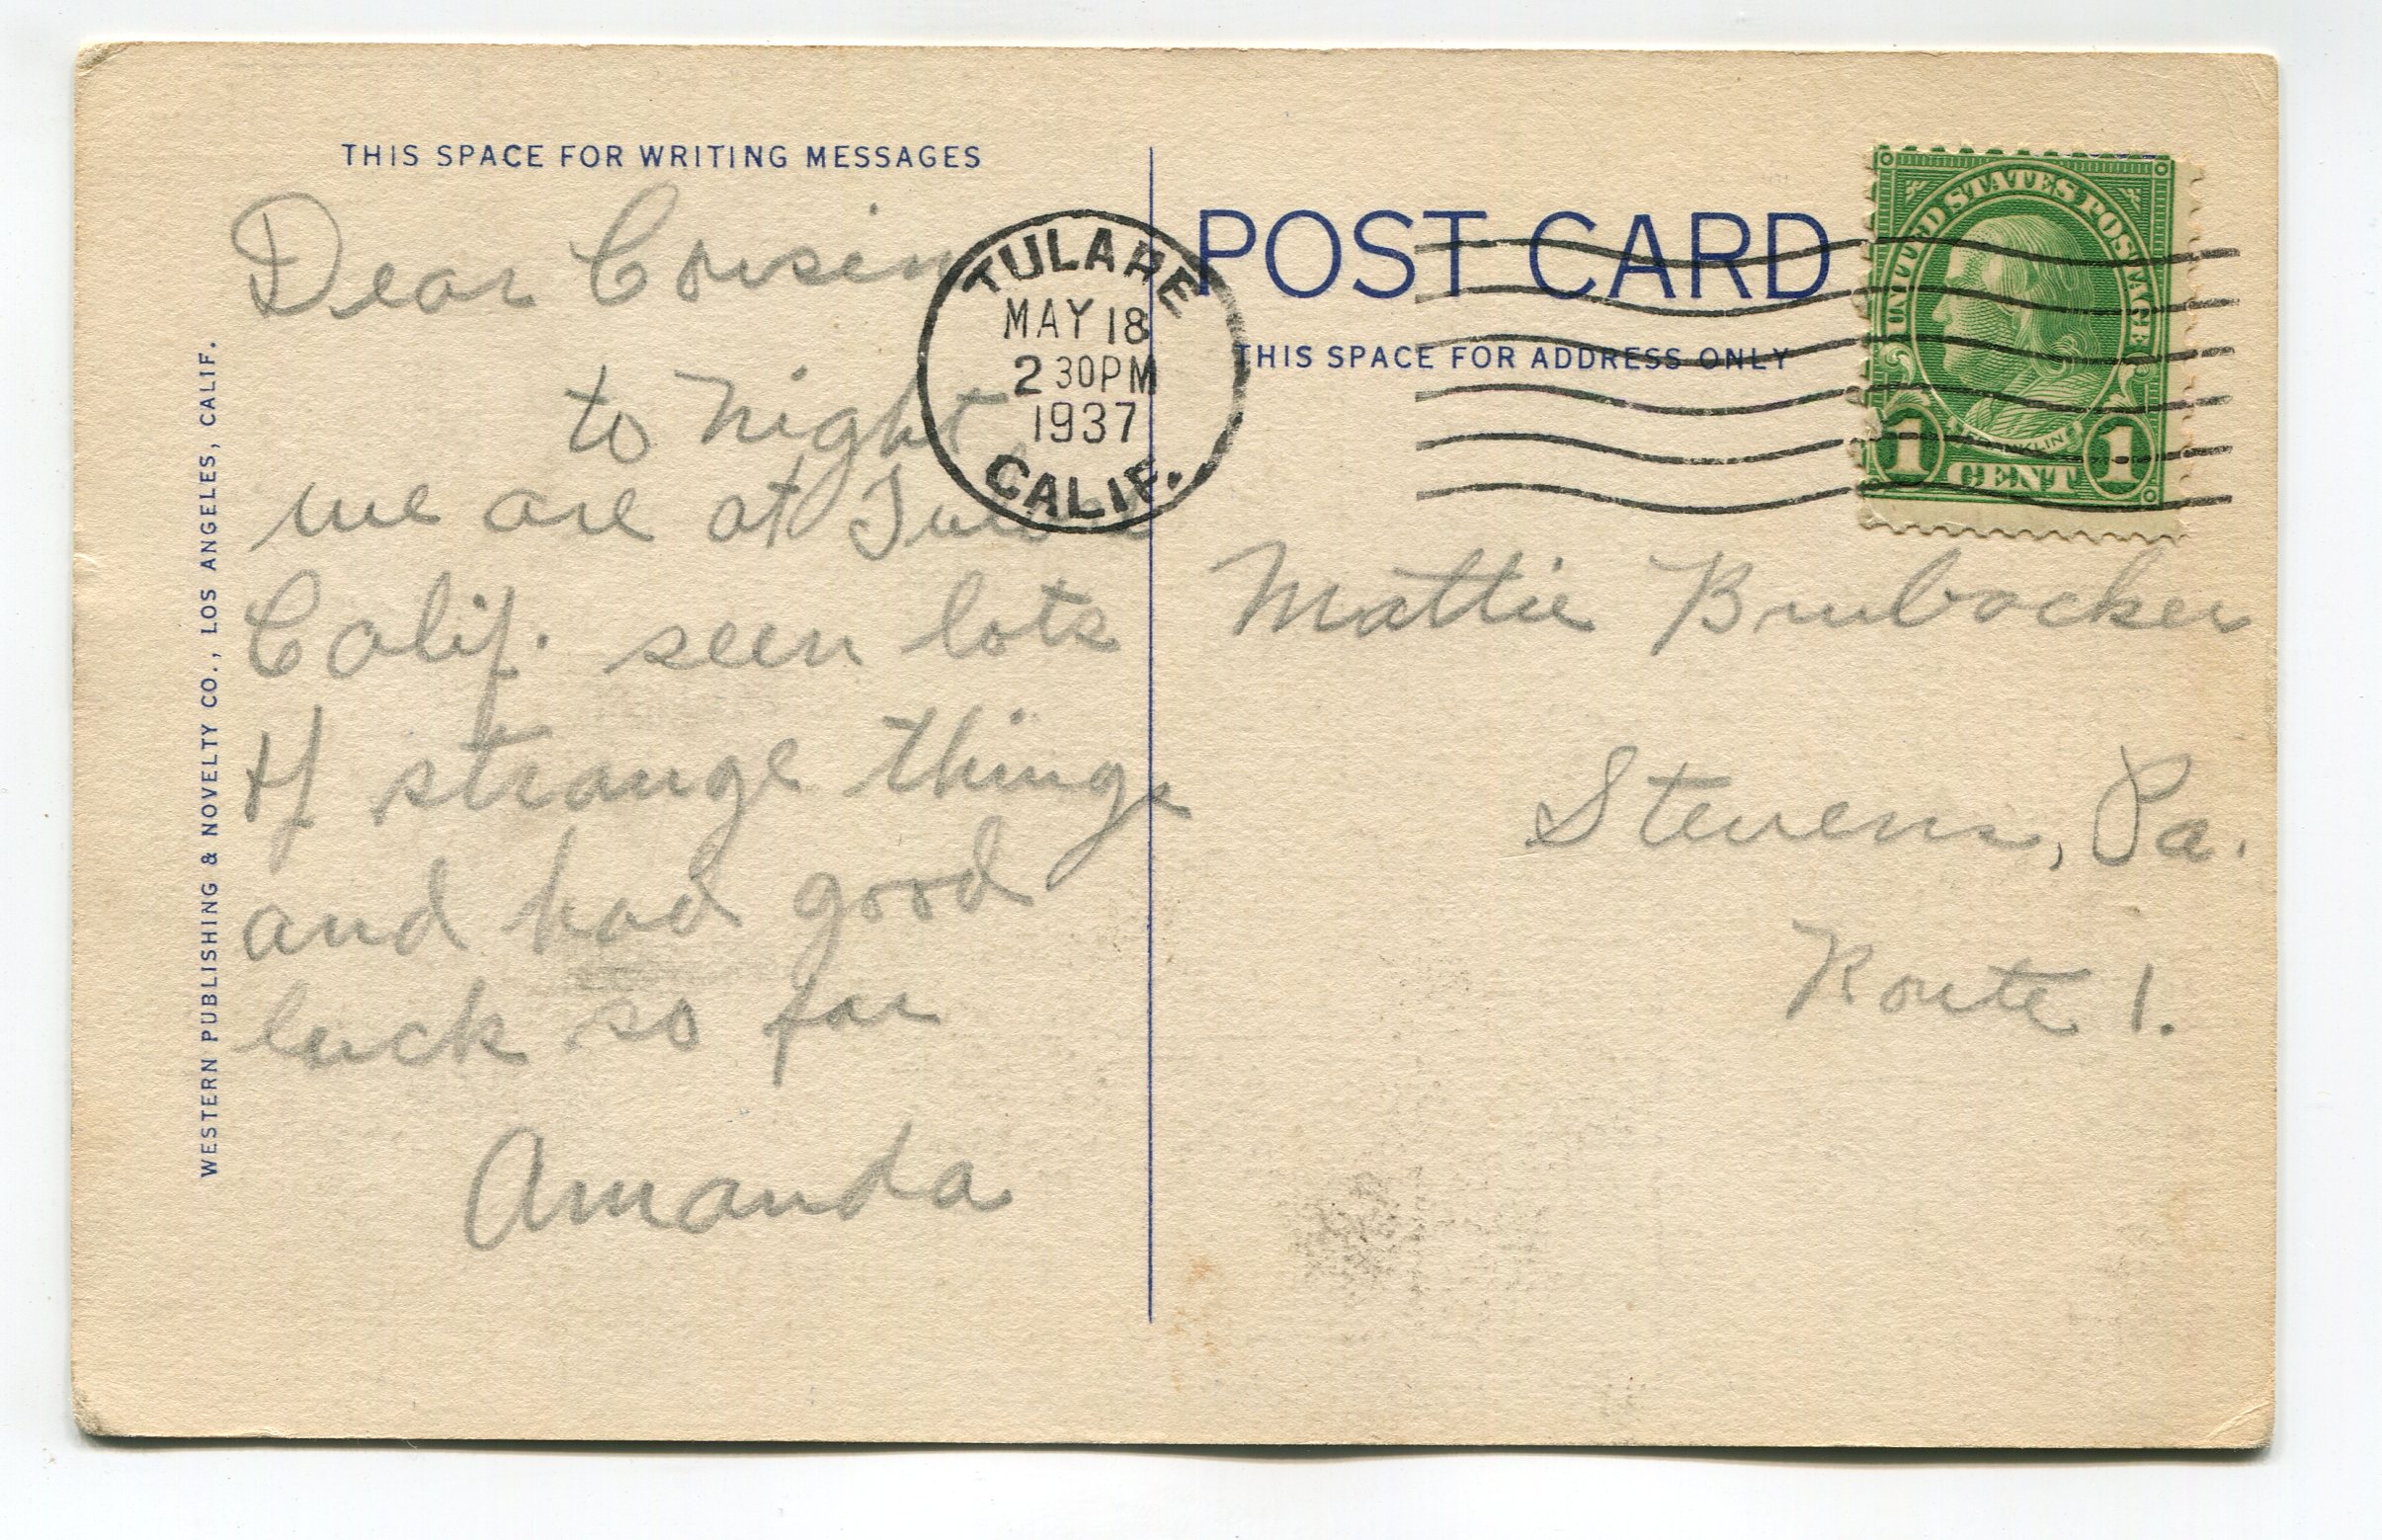 THIS SPACE FOR WRITING MESSAGES
Dear Cousin
to night
we are at Tulare
Calif. seen lots
of strange things
and had good
luck so far
Amanda
WESTERN PUBLISHING & NOVELTY CO., LOS ANGELES, CALIF.
TULARE
MAY 18
2 30PM
1937
CALIF.
POST CARD
THIS SPACE FOR ADDRESS ONLY
UNITED STATES POSTAGE
FRANKLIN
1 CENT 1
Mattie Brubacker
Stevens, Pa.
Route 1.